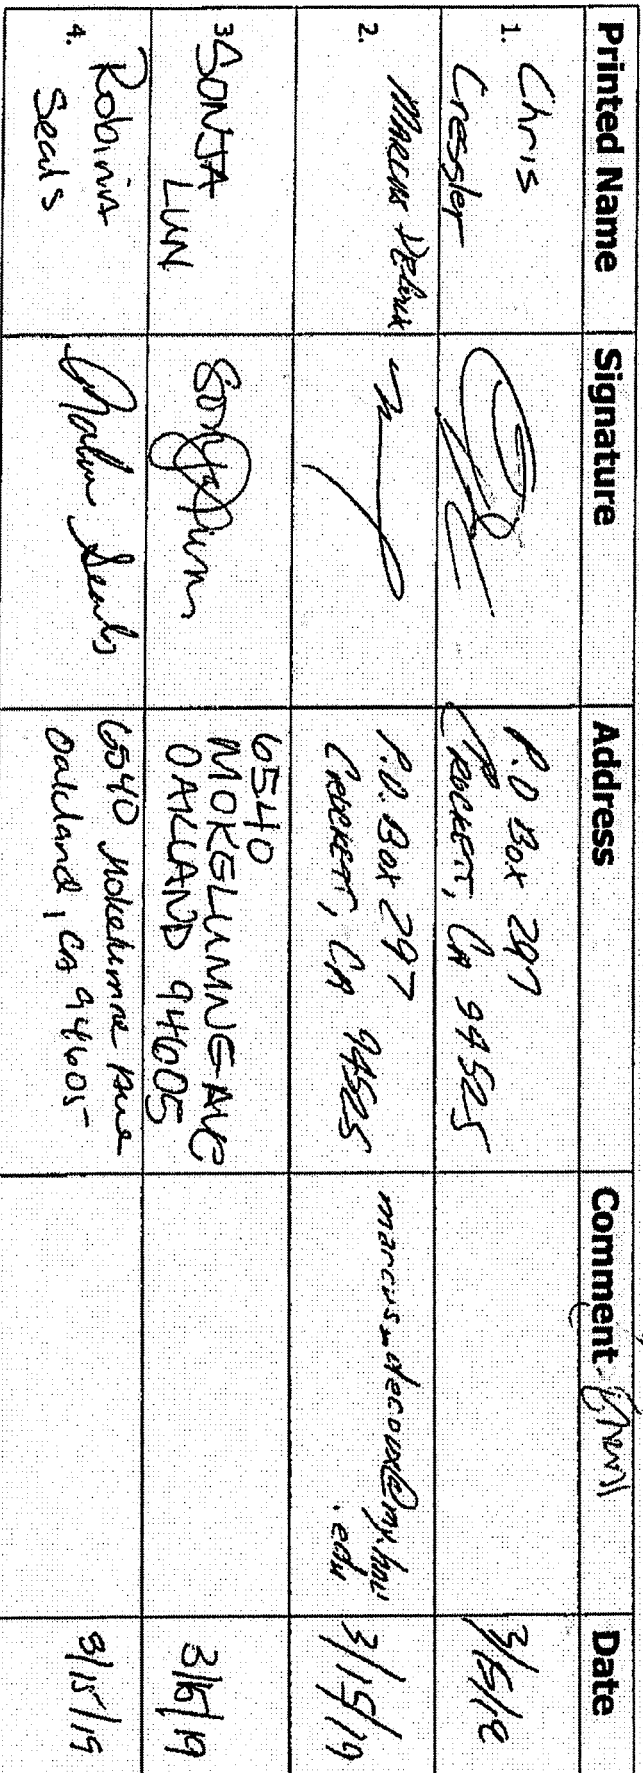 Printed Name Signature Address Comment - Email Date
1. Chris
Cressler
P.O Box 297
Crockett, CA 94525
3/15/19
2. Marcus
P.O. Box 297
Crockett, CA 94525
.edu
3/15/19
3 SONJA
LUN
6540
MOKELUMNE AVE
OAKLAND 94605
3/15/19
4. Robinia
Seals
Seals
6540 Mokelumne Ave
Oakland, CA 94605
3/15/19